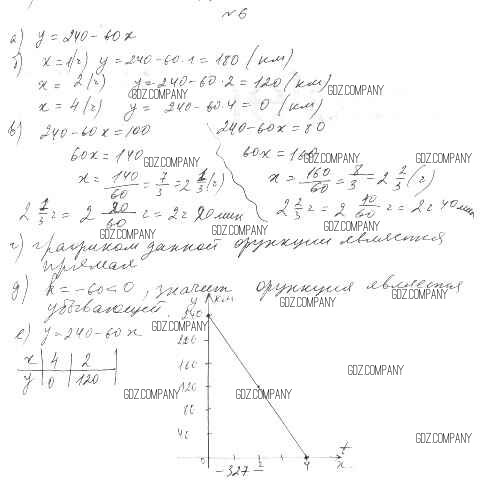 №6
а) y = 240 - 60x
б) x = 1 (ч) y = 240 - 60·1 = 180 (км)
x = 2 (ч) y = 240 - 60·2 = 120 (км)
GDZ.COMPANY GDZ.COMPANY
x = 4 (ч) y = 240 - 60·4 = 0 (км)
в) 240 - 60x = 100 240 - 60x = 80
60x = 140 60x = 160
GDZ.COMPANY GDZ.COMPANY
x = 140/60 = 7/3 = 2 1/3 (ч) x = 160/60 = 8/3 = 2 2/3 (ч)
2 1/3 ч = 2 20/60 ч = 2ч 20мин 2 2/3 ч = 2 40/60 ч = 2ч 40мин
GDZ.COMPANY GDZ.COMPANY GDZ.COMPANY
г) графиком данной функции является
прямая
д) k = -60 < 0, значит функция является
GDZ.COMPANY GDZ.COMPANY
убывающей.
е) y = 240 - 60x
x 4 2
y 0 120
y км
240
GDZ.COMPANY
200
160
GDZ.COMPANY
120
GDZ.COMPANY GDZ.COMPANY
80
40
GDZ.COMPANY
0 2 4 t
x
-327-